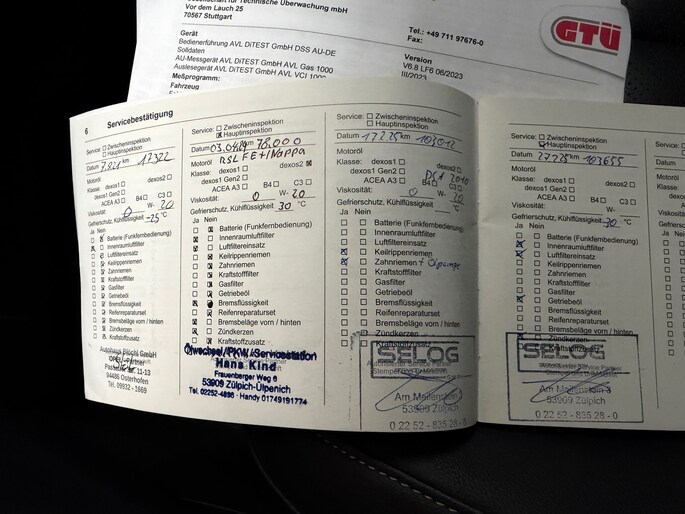 Gesellschaft für Technische Überwachung mbH
Vor dem Lauch 25
70567 Stuttgart
Tel.: +49 711 97676-0
Fax:
GTÜ
Gerät
Bedienerführung AVL DiTEST GmbH DSS AU-DE
Solldaten
AU-Messgerät AVL DiTEST GmbH AVL Gas 1000
Auslesegerät AVL DiTEST GmbH AVL VCI 1000
Meßprogramm:
Fahrzeug
Version
V6.8 LF6 06/2023
III/2023
6 Servicebestätigung
Service: Zwischeninspektion
Hauptinspektion
Datum 7.8.21 km 17322
Motoröl
Klasse: dexos1 dexos2
dexos1 Gen2
ACEA A3 B4 C3
Viskosität: 0 W- 20
Gefrierschutz, Kühlflüssigkeit -25 °C
Ja Nein
Batterie (Funkfernbedienung)
Innenraumluftfilter
Luftfiltereinsatz
Keilrippenriemen
Zahnriemen
Kraftstofffilter
Gasfilter
Getriebeöl
Bremsflüssigkeit
Reifenreparaturset
Bremsbeläge vorn / hinten
Zündkerzen
Kraftstoffzusatz
Autohaus Plöchl GmbH
94486 Osterhofen
Tel. 09932 - 1669
Service: Zwischeninspektion
Hauptinspektion
Datum 03.04.24 km 78.000
Motoröl
Klasse: dexos1 dexos2
dexos1 Gen2
ACEA A3 B4 C3
Viskosität: 0 W- 20
Gefrierschutz, Kühlflüssigkeit 30 °C
Ja Nein
Batterie (Funkfernbedienung)
Innenraumluftfilter
Luftfiltereinsatz
Keilrippenriemen
Zahnriemen
Kraftstofffilter
Gasfilter
Getriebeöl
Bremsflüssigkeit
Reifenreparaturset
Bremsbeläge vorn / hinten
Zündkerzen
Kraftstoffzusatz
Ölwechsel/PKW/Servicestation
Hans Kind
Frauenberger Weg 6
53909 Zülpich-Ülpenich
Tel. 02252-4896 · Handy 01749191774
Service: Zwischeninspektion
Hauptinspektion
Datum 17.2.25 km 103012
Motoröl
Klasse: dexos1 dexos2
dexos1 Gen2
ACEA A3 B4 C3
Viskosität: 0 W- 20
Gefrierschutz, Kühlflüssigkeit °C
Ja Nein
Batterie (Funkfernbedienung)
Innenraumluftfilter
Luftfiltereinsatz
Keilrippenriemen
Zahnriemen + Ölpumpe
Kraftstofffilter
Gasfilter
Getriebeöl
Bremsflüssigkeit
Reifenreparaturset
Bremsbeläge vorn / hinten
Zündkerzen
SELOG
Am Meilenstein 3
53909 Zülpich
0 22 52 - 835 28 - 0
Service: Zwischeninspektion
Hauptinspektion
Datum 27.2.25 km 103655
Motoröl
Klasse: dexos1 dexos2
dexos1 Gen2
ACEA A3 B4 C3
Viskosität: W-
Gefrierschutz, Kühlflüssigkeit 30 °C
Ja Nein
Batterie (Funkfernbedienung)
Innenraumluftfilter
Luftfiltereinsatz
Keilrippenriemen
Zahnriemen
Kraftstofffilter
Gasfilter
Getriebeöl
Bremsflüssigkeit
Reifenreparaturset
Bremsbeläge vorn / hinten
Zündkerzen
Kraftstoffzusatz
SELOG
Am Meilenstein 3
53909 Zülpich
0 22 52 - 835 28 - 0
Service:
Datum
Motoröl
Klasse:
Viskosität:
Gefrierschutz
Ja Nein